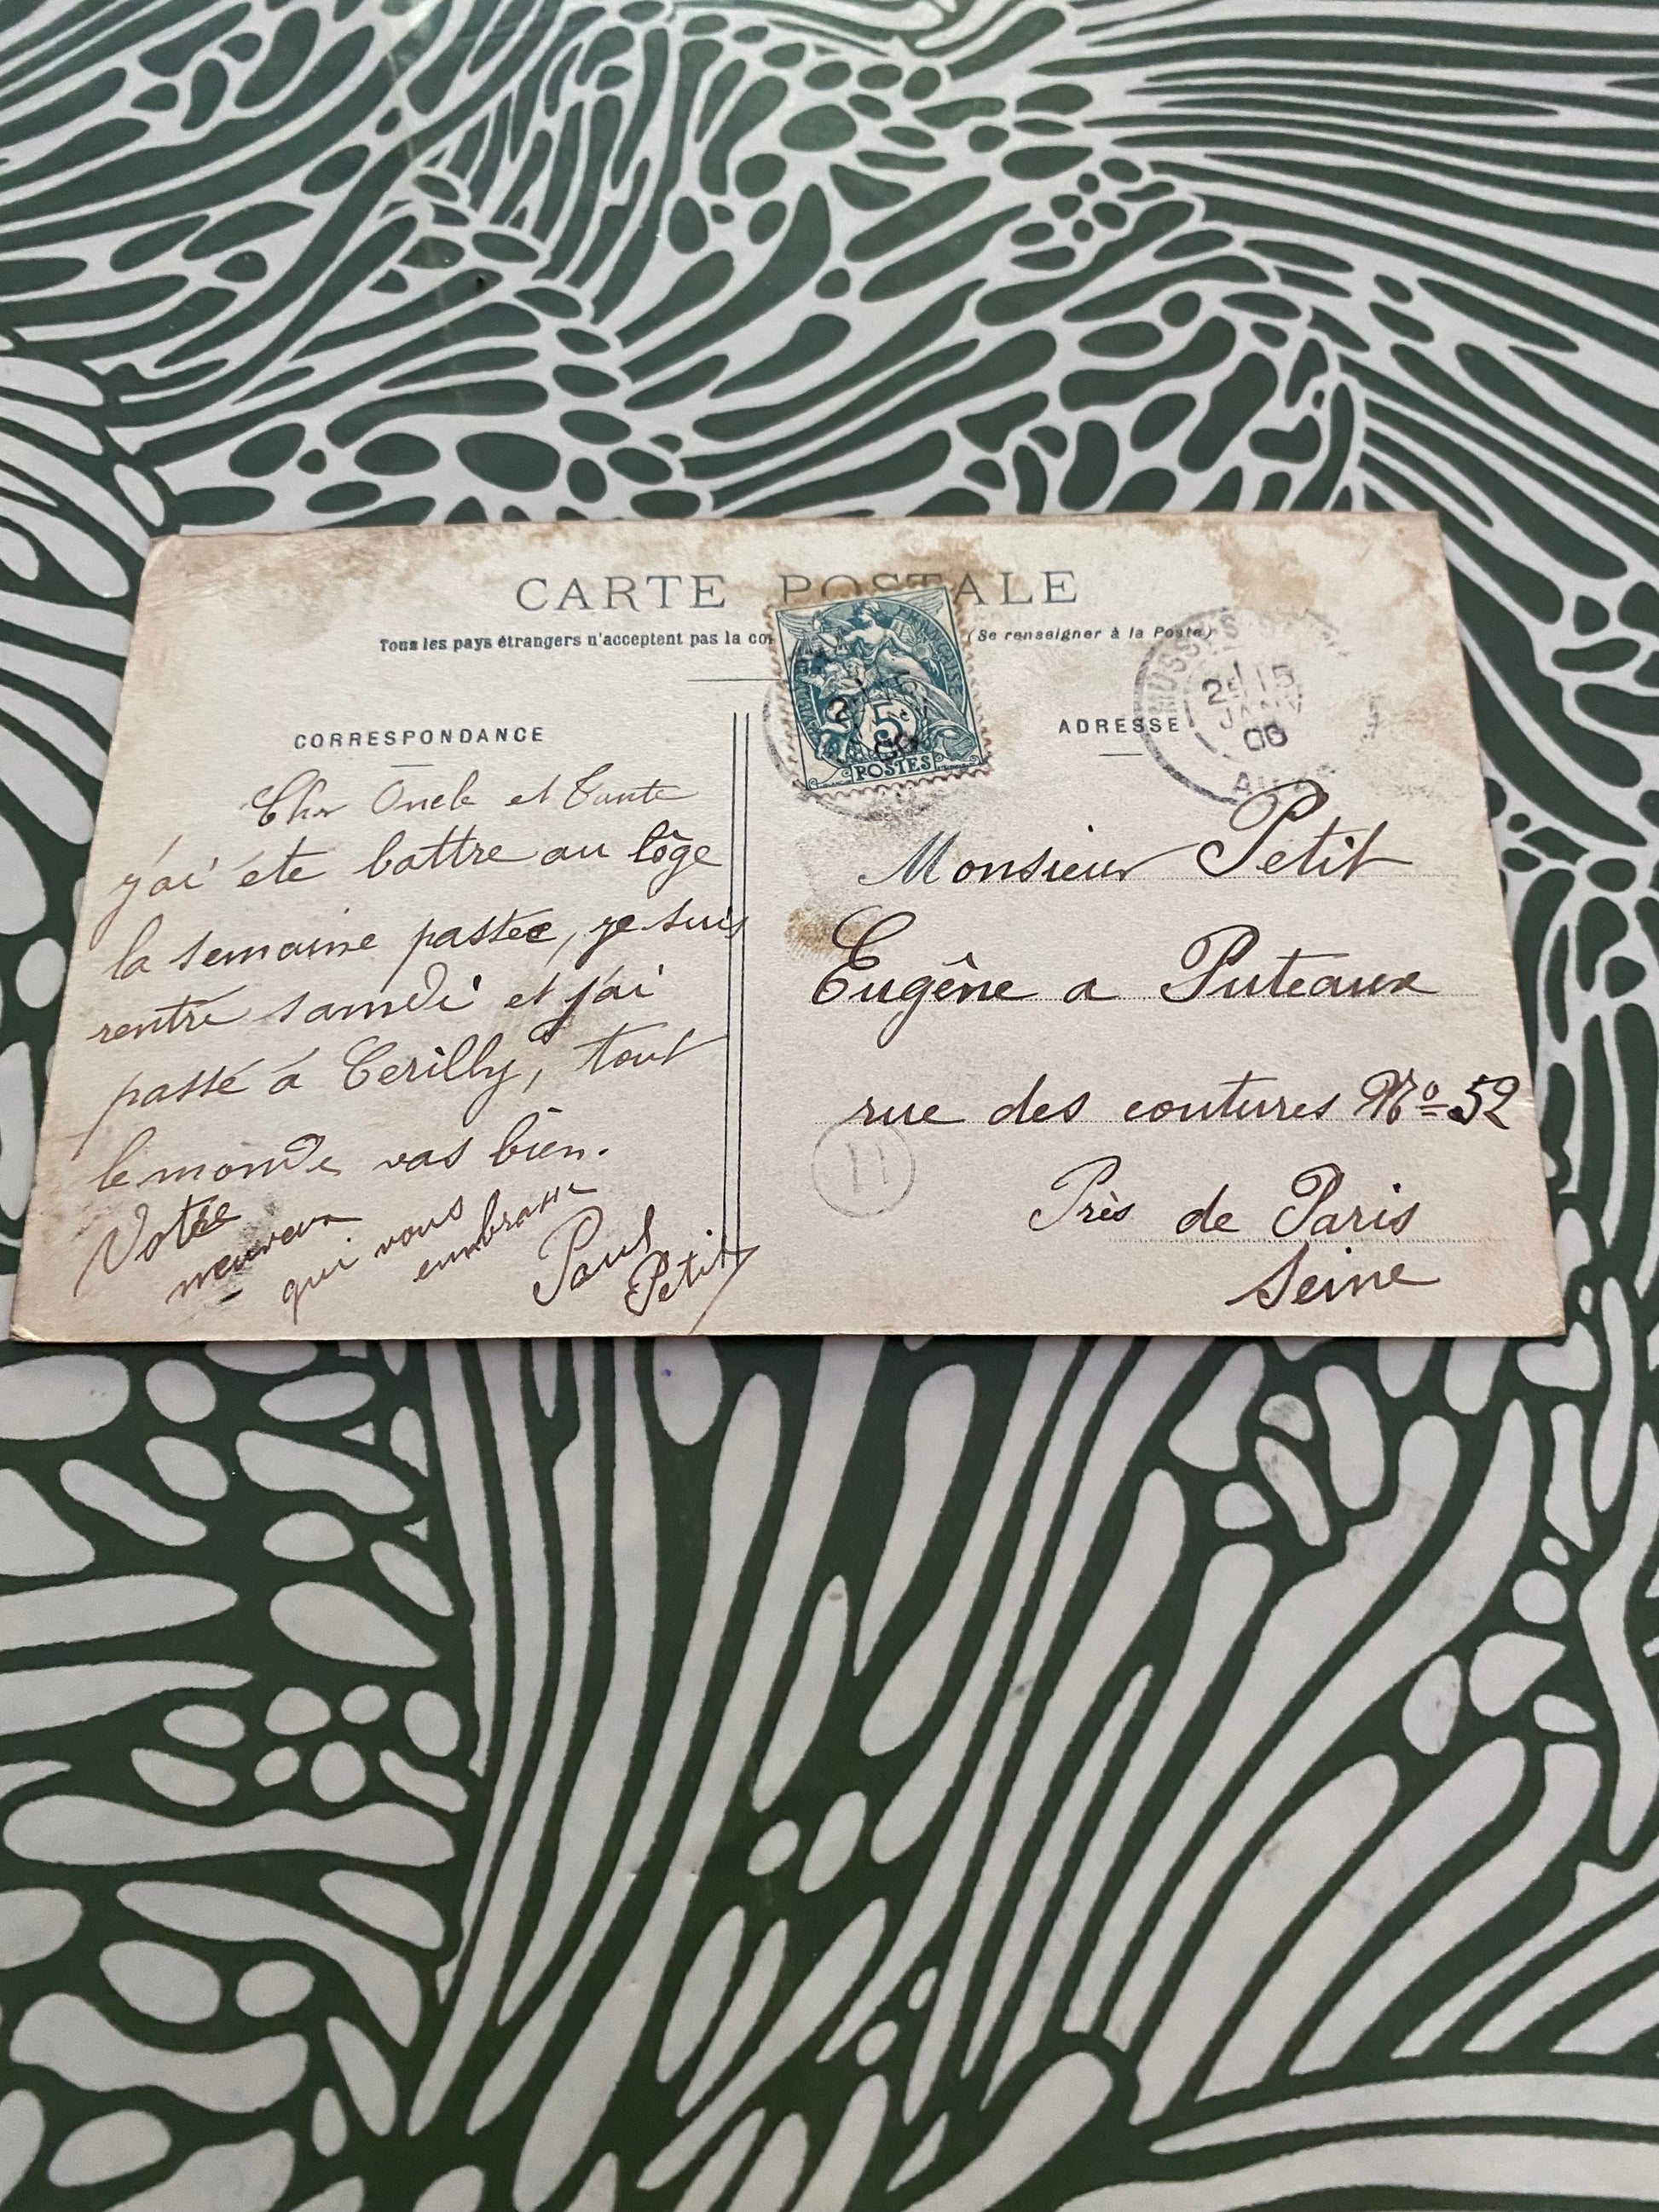 CARTE POSTALE
Tous les pays étrangers n'acceptent pas la (Se renseigner à la Poste)
CORRESPONDANCE
Cher Oncle et Tante
j'ai éte battre au lôge
la semaine passée, je suis
rentré samdi et j'ai
passé à Cerilly, tout
le monde vas bien.
Votre
neuveu
qui vous
embrasse
Paul
Petit
5c
POSTES
ADRESSE
15
JANV
06
Monsieur Petit
Eugêne a Puteaux
rue des coutures No 52
Près de Paris
Seine
11